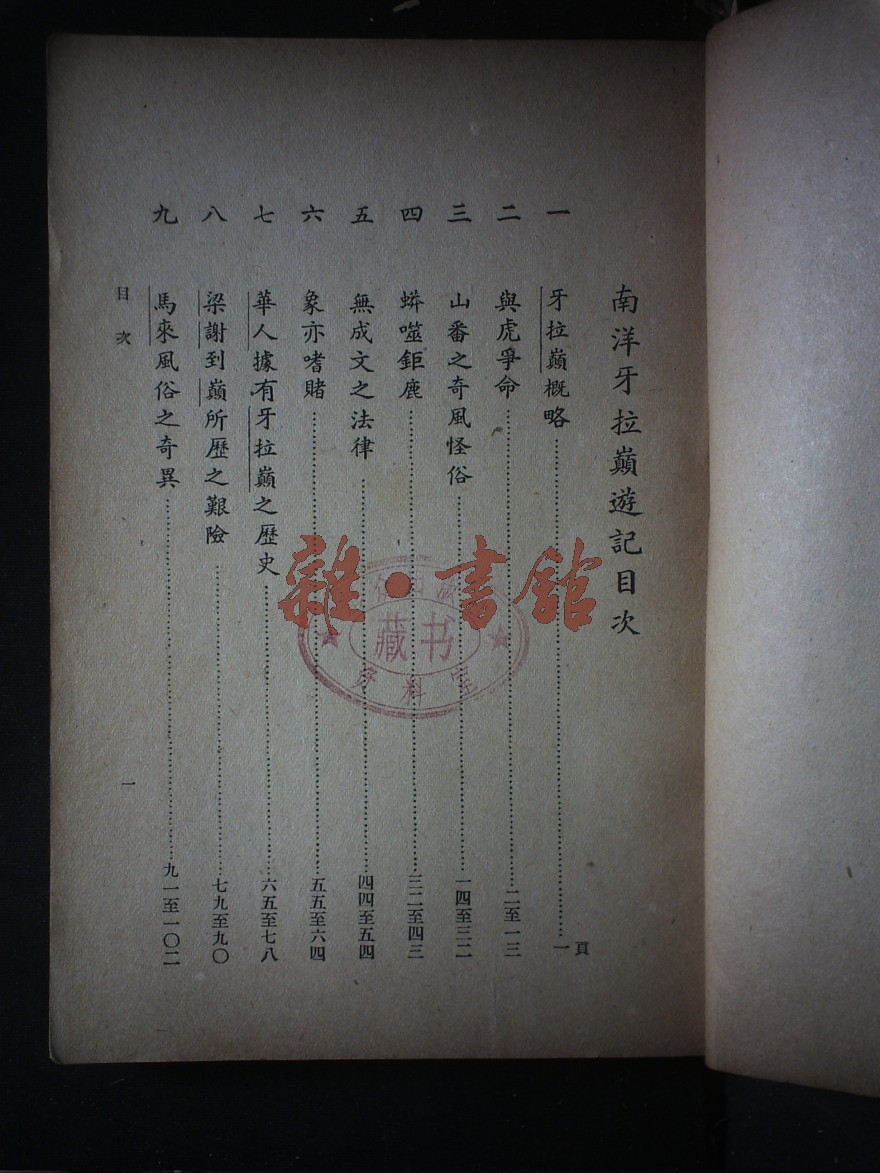 南洋牙拉巔遊記目次
頁
一 牙拉巔概略 一
二 與虎爭命 二至一三
三 山番之奇風怪俗 一四至三二
四 蟒噬鉅鹿 三二至四三
五 無成文之法律 四四至五四
六 象亦嗜賭 五五至六四
七 華人據有牙拉巔之歷史 六五至七八
八 梁謝到巔所歷之艱險 七九至九〇
九 馬來風俗之奇異 九一至一〇二
目次 一
雜·書館
藏书
资料室